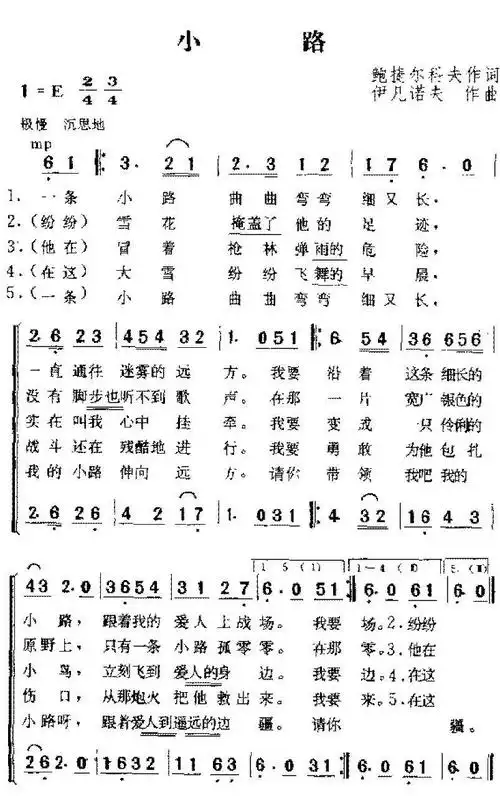 小 路
鲍接尔科夫作词
伊凡诺夫 作曲
1 = E 2/4 3/4
极慢 沉思地
mp
6 1 𝄆 3. 2 1 | 2. 3 1 2 | 1 7 6. 0
1. 一条 小路 曲曲弯弯 细又长,
2. (纷纷) 雪花 掩盖了他的足迹,
3. (他在) 冒着 枪林弹雨的危险,
4. (在这) 大雪 纷纷飞舞的早晨,
5. (一条) 小路 曲曲弯弯 细又长,
2. 6 2 3 | 4 5 4 3 2 | 1. 0 5 1 𝄆 6. 5 4 | 3 6 6 5 6
一直通往 迷雾的远方。我要 沿着 这条细长的
没有脚步也听不到歌声。在那 一片 宽广银色的
实在叫我 心中挂牵。我要 变成 一只伶俐的
战斗还在 残酷地进行。我要 勇敢 为他包扎
我的小路 伸向远方。请你 带领 我吧我的
2. 6 2 6 | 4 2 1 7 | 1. 0 3 1 𝄆 4. 3 2 | 1 6 4 3
1 5 (I) 1—4 (II) 5. (II)
4 3 2. 0 | 3 6 5 4 | 3 1 2 7 | 6. 0 5 1 𝄇 6. 0 6 1 𝄇 6. 0
小路,跟着我的爱人上战场。我要 场。2.纷纷
原野上,只有一条小路孤零零。在那 零。3.他在
小鸟,立刻飞到爱人的身边。我要 边。4.在这
伤口,从那炮火把他救出来。我要 来。5.在这
小路呀,跟着爱人到遥远的边疆。请你 疆。
2 6 2. 0